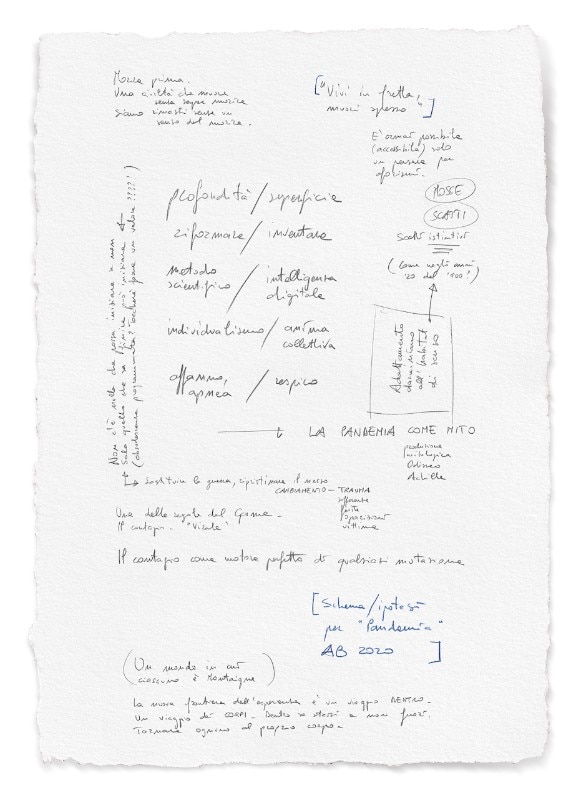 prima.
Una civiltà che
senza
siamo rimasti senza un
senso del
["Vivi in fretta,
muori spesso"]
E' ormai possibile
(accessibile) solo
un pensare per
aforismi.
MOSSE
SCATTI
scatti istintivi
(come negli anni
'20 del '900!)
profondità/superficie
riformare/inventare
metodo
scientifico/intelligenza
digitale
individualismo/anima
collettiva
affanno,
apnea/respiro
Non c'è nulla che possa iniziare a non
Solo quello che sa finire può iniziare
(obsolescenza programmata? Poiché fare un valore ????!)
Adattamento
all'habitat
di senso
LA PANDEMIA COME MITO
produzione
mitologica
Odisseo
Achille
sostituire la guerra, ripristinare il
CAMBIAMENTO - TRAUMA
sofferente
ferite
vittima
Una delle regole del Game -
Il contagio. "Virale"
Il contagio come motore perfetto di qualsiasi mutazione
[Schema/ipotesi
per "Pandemia"
AB 2020]
(Un mondo in cui
ciascuno è Montaigne)
La nuova frontiera dell'esperienza è un viaggio DENTRO.
Un viaggio dei CORPI. Dentro se stessi e non fuori.
Tornare ognuno al proprio corpo.